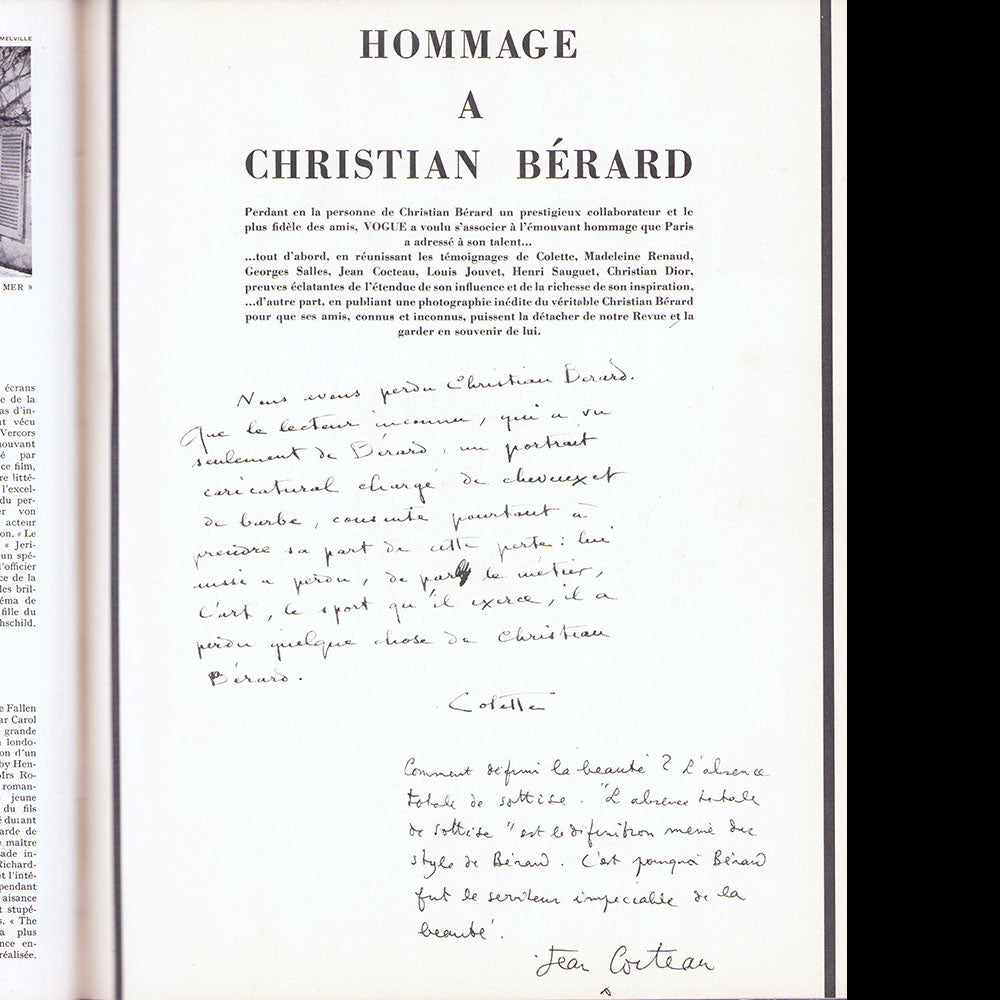 MELVILLE
MER »
écrans
e de la
as d'in-
t vécu
Vercors
ouvant
é par
ce film,
re litté-
l'excel-
du per-
er von
acteur
on. « Le
« Jeri-
un spé-
l'officier
ce de la
les bril-
éma de
fille du
hschild.
e Fallen
ar Carol
grande
londo-
on d'un
by Hen-
Mrs Ro-
roman-
jeune
du fils
é durant
arde de
e maître
ade in-
Richard-
t l'inté-
pendant
aisance
t stupé-
s. « The
a plus
nce en-
réalisée.
HOMMAGE
A
CHRISTIAN BÉRARD
Perdant en la personne de Christian Bérard un prestigieux collaborateur et le
plus fidèle des amis, VOGUE a voulu s'associer à l'émouvant hommage que Paris
a adressé à son talent...
...tout d'abord, en réunissant les témoignages de Colette, Madeleine Renaud,
Georges Salles, Jean Cocteau, Louis Jouvet, Henri Sauguet, Christian Dior,
preuves éclatantes de l'étendue de son influence et de la richesse de son inspiration,
...d'autre part, en publiant une photographie inédite du véritable Christian Bérard
pour que ses amis, connus et inconnus, puissent la détacher de notre Revue et la
garder en souvenir de lui.
Nous avons perdu Christian Bérard.
Que le lecteur inconnu, qui a vu
seulement de Bérard, un portrait
caricatural chargé de cheveux et
de barbe, consente pourtant à
prendre sa part de cette perte : lui
aussi a perdu, de par le métier,
l'art, le sport qu'il exerce, il a
perdu quelque chose de Christian
Bérard.
Colette
Comment définir la beauté ? L'absence
totale de sottise. "L'absence totale
de sottise" est la définition même du
style de Bérard. C'est pourquoi Bérard
fut le serviteur impeccable de la
beauté.
Jean Cocteau